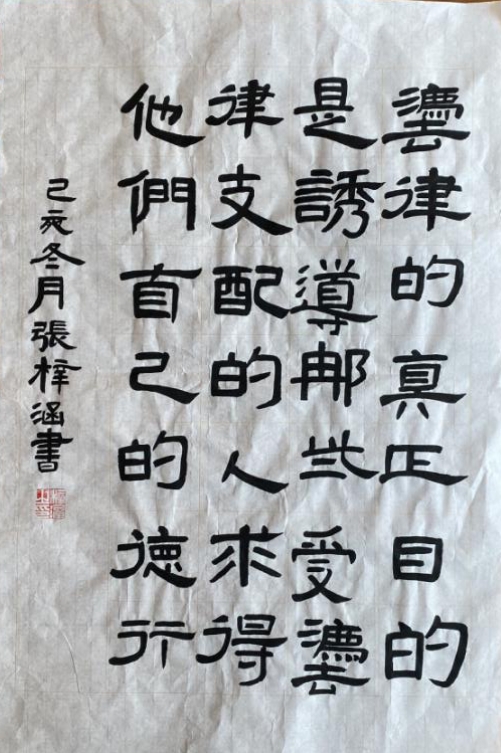 灋律的真正目的
是誘導那些受灋
律支配的人求得
他們自己的德行
己亥冬月張梓涵書